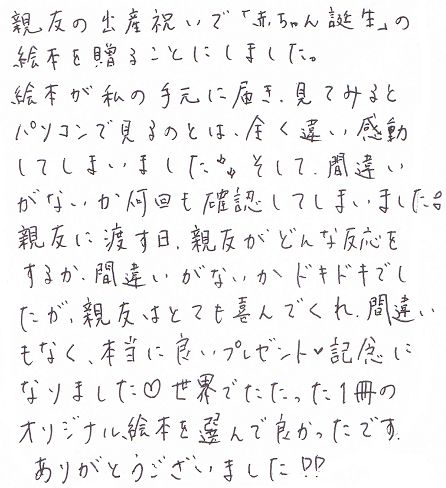 親友の出産祝いで「赤ちゃん誕生」の
絵本を贈ることにしました。
絵本が私の手元に届き、見てみると
パソコンで見るのとは、全く違い感動
してしまいました。そして、間違い
がないか何回も確認してしまいました。
親友に渡す日、親友がどんな反応を
するか、間違いがないかドキドキでし
たが、親友はとても喜んでくれ、間違い
もなく、本当に良いプレゼント♥記念に
なりました♡世界でたたった1冊の
オリジナル絵本を選んで良かったです。
ありがとうございました!!